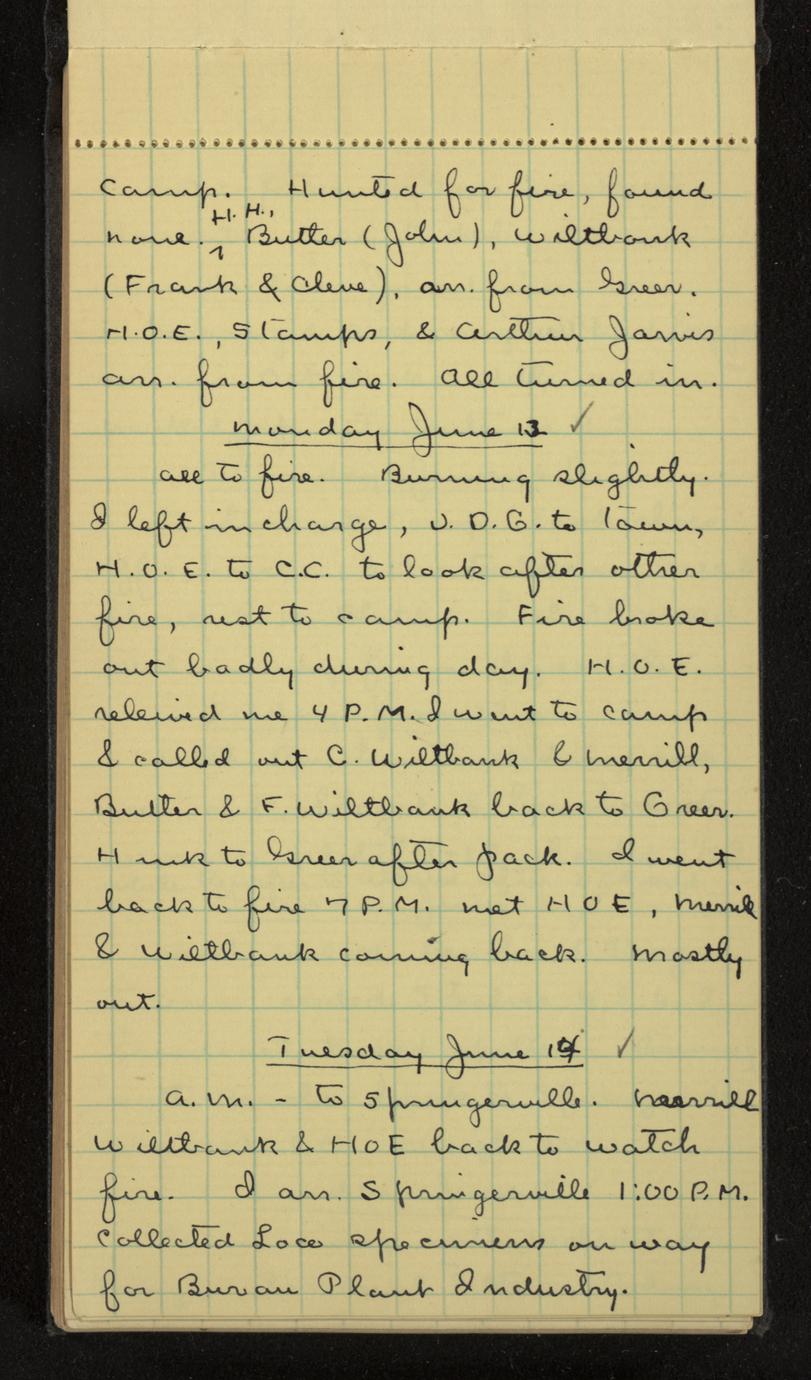 camp. Hunted for fire, found
H. H.,
none. Butler (John), Wiltbank
(Frank & Cleve), arr. from Greer.
H.O.E., Stamps, & Arthur Jarvis
arr. from fire. All turned in.
Monday June 13 ✓
All to fire. Burning slightly.
I left in charge, J. D. G. to Town,
H.O.E. to C.C. to look after other
fire, rest to camp. Fire broke
out badly during day. H.O.E.
releived me 4 P.M. I went to camp
& called out C. Wiltbank & Merrill,
Butler & F. Wiltbank back to Greer.
H unk to Greer after pack. I went
back to fire 7 P.M. met HOE, Merrill
& Wiltbank coming back. Mostly
out.
Tuesday June 14 ✓
A.M. - to Springerville. Merrill
Wiltbank & HOE back to watch
fire. I arr. Springerville 1:00 P.M.
Collected Loco specimens on way
for Bureau Plant Industry.